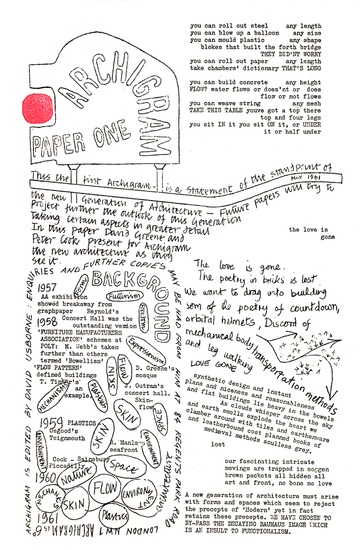 you can roll out steel any length
you can blow up a balloon any size
you can mould plastic any shape
blokes that built the forth bridge
THEY DIDN'T WORRY
you can roll out paper any length
take chambers' dictionary THAT'S LONG
you can build concrete any height
FLOW? water flows or does'nt or does
flor or not flows
you can weave string any mesh
TAKE THIS TABLE youve got a top there
top and four legs
you sit IN it you sit ON it, or UNDER
it or half under
ARCHIGRAM
PAPER ONE
This the first Archigram is a statement of the standpoint of
MAY 1961
the new Generation of Architecture — Future papers will try to
Project further the outlook of this Generation
Taking certain aspects in greater detail
In this paper David Greene and
Peter Cook present for Archigram
the new architecture as they
see it.
the love is
gone
ENQUIRIES AND FURTHER COPIES MAY BE HAD FROM HIM AT 84 REGENT'S PARK ROAD LONDON NW1
ARCHIGRAM IS EDITED BY DAVID USBORNE:
BACKGROUND
1957
AA exhibition
showed breakaway from
graphpaper Reynold's
1958 Concert Hall was the
outstanding version
'FURNITURE MANUFACTURERS
ASSOCIATION' schemes at
POLY: M. Webb's taken
further than others
termed 'Bowellism'
'FLOW PATTERN'
defined buildings
T.
an
example.
Futurism
Expressionism
FLOW
SKIN
D. Greene's
mosque
J. Outram's
concert hall.
Skin-
flow
1959 PLASTICS
Osgood's
Teignmouth
SKIN
SKIN
S. Manlo-
seafront
Cook - Sainsbury
Piccadilly
1960
Nature
Space
SKIN
FLOW
Plastics
1961
ARCHIGRAM
The love is gone.
The poetry in bricks is lost
We want to drag into building
some of the poetry of countdown,
orbital helmets, Discord of
mechanical body transportation methods
and leg walking
LOVE GONE
synthetic design and instant
plans and niceness and reasonableness
and flat buildings lie heavy in the bowels
As clouds whisper across the sky
and earth smells explode the heart
chamber around with tiles and earthenware
and leatherbound cost planned books of
medieval methods soulless grey,
lost
our fascinating intricate
movings are trapped in soggen
brown packets all hidden all
art and front, no bone no love
A new generation of architecture must arise
with forms and spaces which seem to reject
the precepts of 'Modern' yet in fact
retains these precepts. WE HAVE CHOSEN TO
BY-PASS THE DECAYING BAUHAUS IMAGE WHICH
IS AN INSULT TO FUNCTIONALISM.